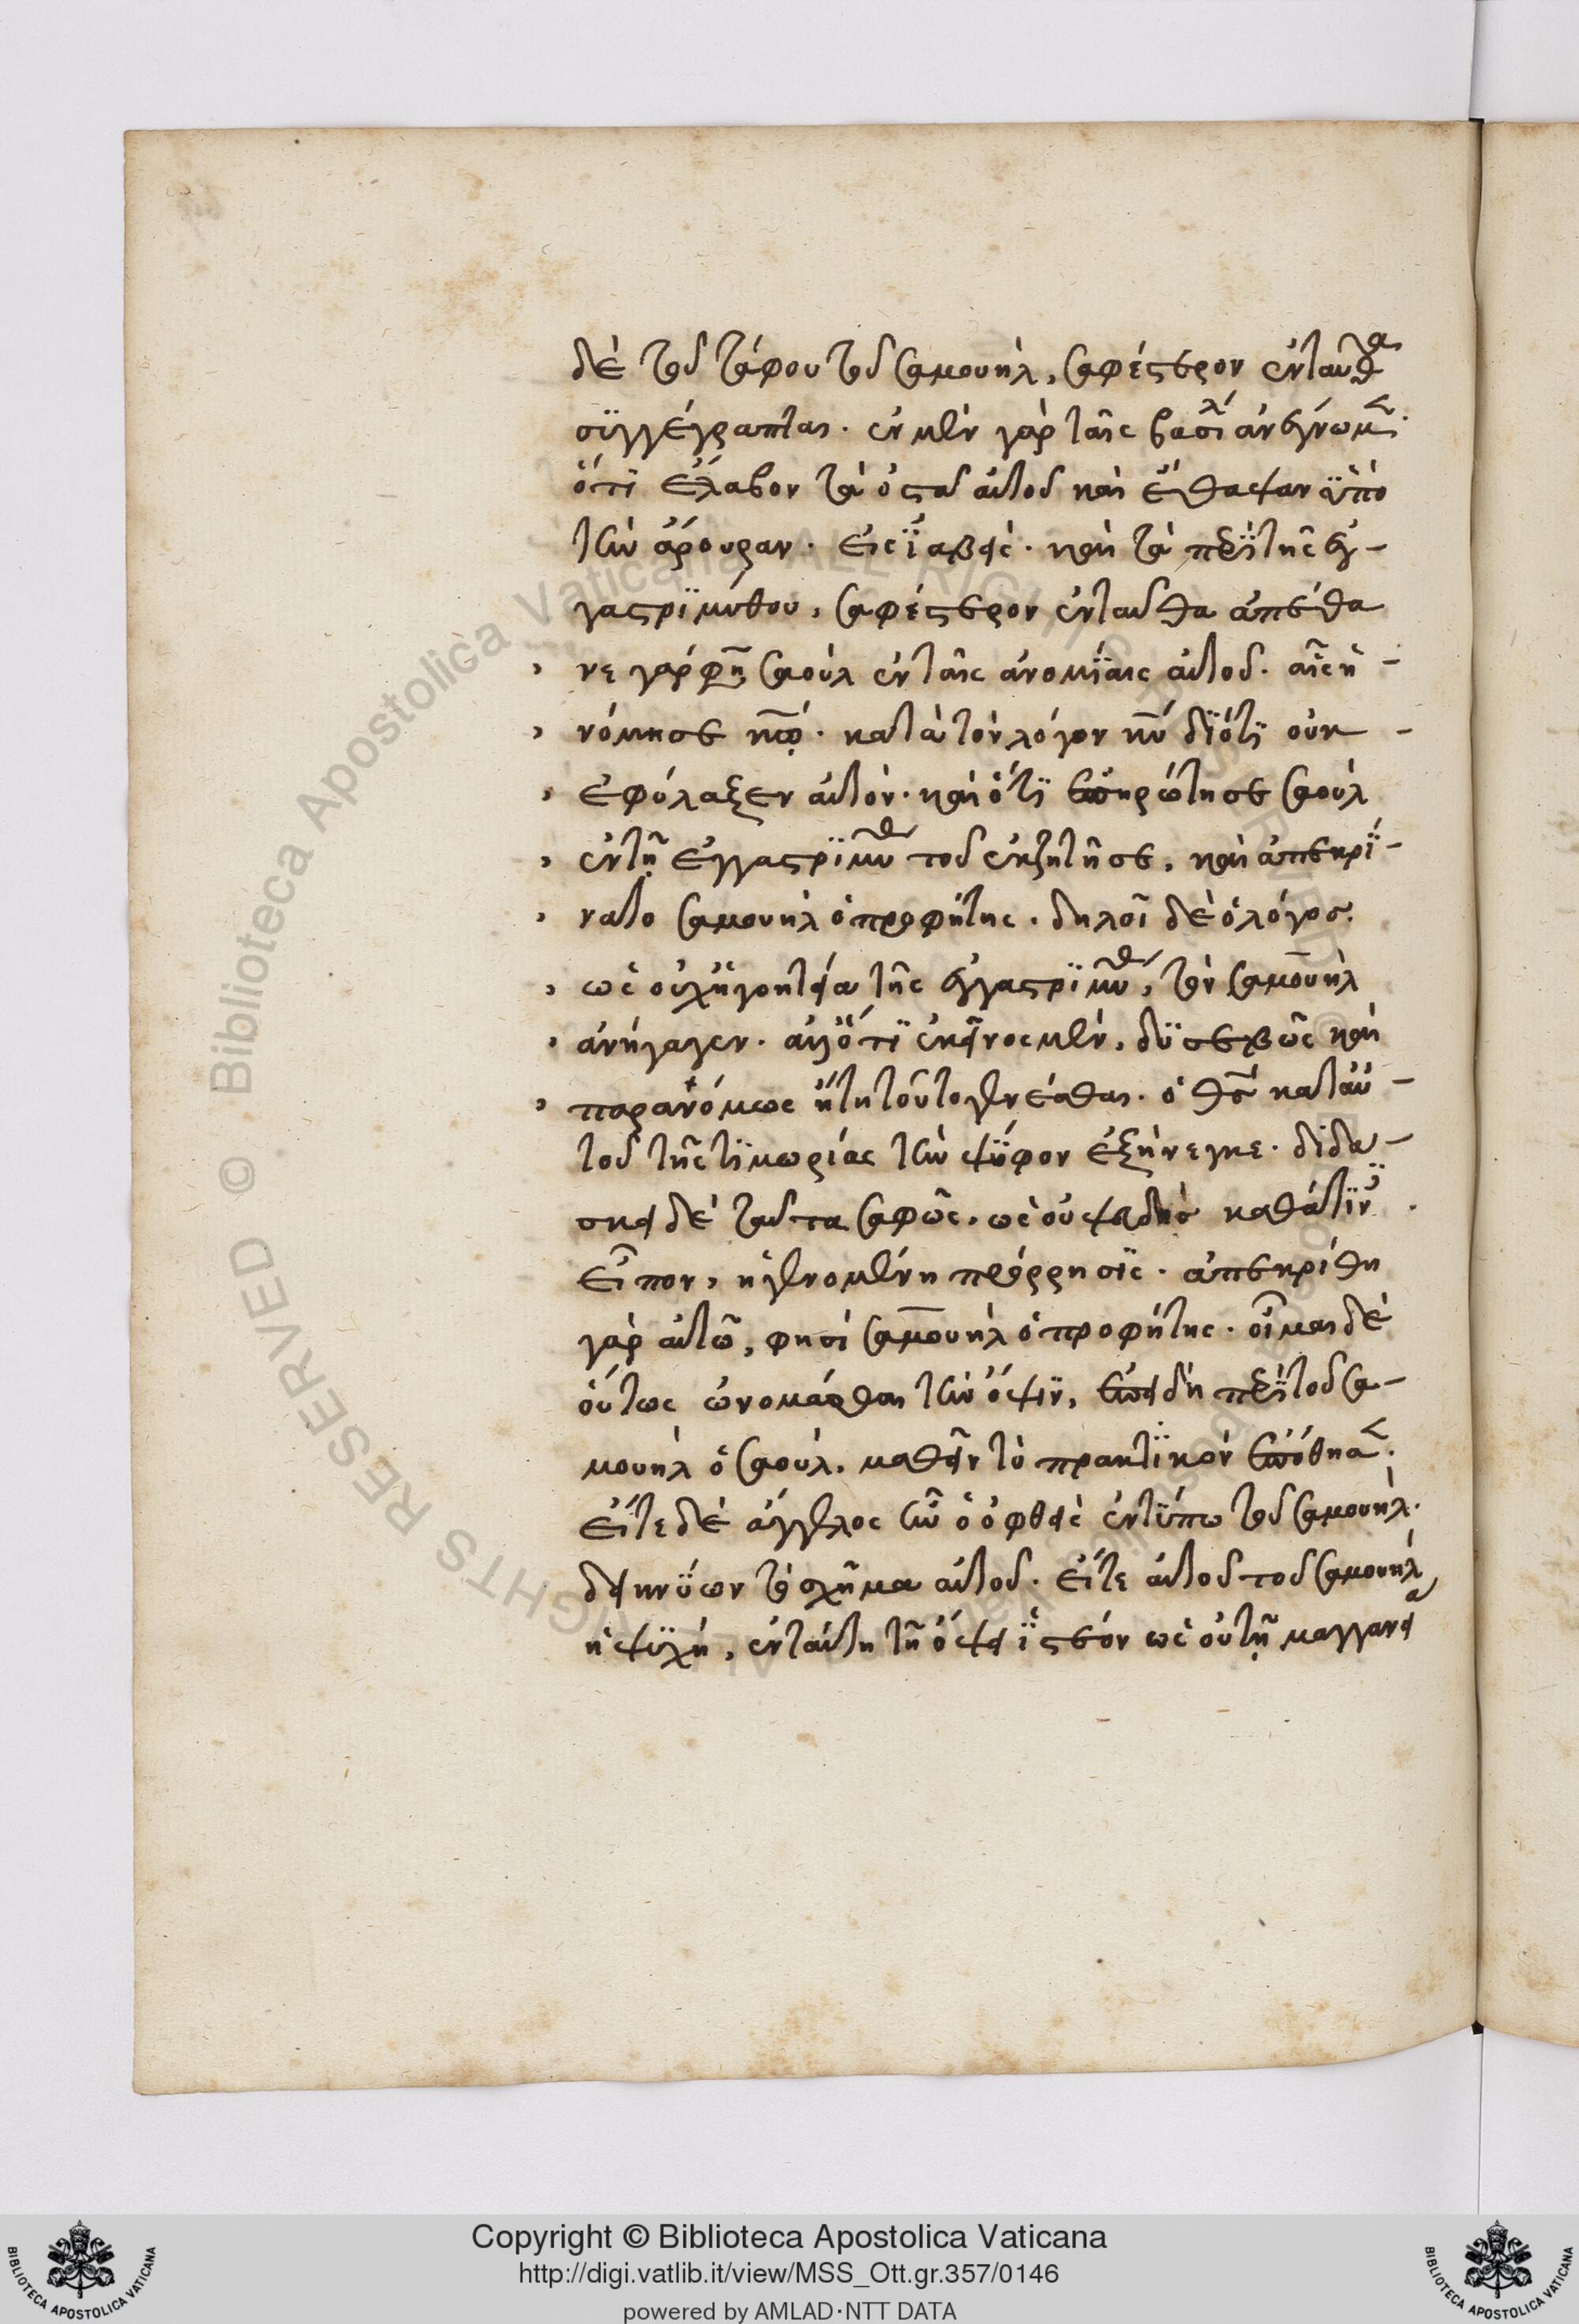 δὲ τοῦ τάφου τοῦ σαμουήλ, σαφέστερον ἐνταῦθα
συγγέγραπται. ἐν μὲν γὰρ ταῖς βασιλεί ἀνέγνωμεν.
ὅτι ἔλαβον τὰ ὀστᾶ αὐτοῦ καὶ ἔθαψαν ὑπὸ
τὴν ἄρουραν. εἰς ἰαβεὶς. καὶ τὰ περὶ τῆς ἐγ-
γαστριμύθου, σαφέστερον ἐνταῦθα ἀπέθα
νε γάρ φησι σαοὺλ ἐν ταῖς ἀνομίαις αὐτοῦ. αἷς ἠ-
νόμησε κῳ. κατὰ τὸν λόγον κυ διότι οὐκ
ἐφύλαξεν αὐτόν. καὶ ὅτι ἐπηρώτησε σαοὺλ
ἐν τῇ ἐγγαστριμύθ τοῦ ἐκζητῆσε, καὶ ἀπεκρί-
νατο σαμουὴλ ὁ προφήτης. δηλοῖ δὲ ὁ λόγος.
ὡς οὐχ ἡ γοητεία τῆς ἐγγαστριμύθ, τὸν σαμουὴλ
ἀνήγαγεν. ἀλλ' ὅτι ἐκεῖνος μὲν, δυσεβῶς καὶ
παρανόμως ᾔτη τοῦτο γενέσθαι. ὁ θς κατ' αὐ-
τοῦ τῆς τιμωρίας τὴν ψύφον ἐξήνεγκε. διδα-
σκει δὲ ταῦτα σαφῶς. ὡς οὐ ψευδὴς καθά τιν
εἶπον, ἡ γενομένη πρόρρησις. ἀπεκρίθη
γὰρ αὐτῶ, φησὶ σαμουὴλ ὁ προφήτης. οἶμαι δὲ
οὕτως ὠνομάσθαι τὴν ὄψιν, ἐπειδὴ περὶ τοῦ σα-
μουὴλ ὁ σαούλ. μαθεῖν τὸ πρακτικὸν ἐπόθησεν.
εἴτε δὲ ἄγγελος ἦν ὁ ὀφθεὶς ἐν τύπω τοῦ σαμουήλ.
δεικνύων τὸ σχῆμα αὐτοῦ. εἴτε αὐτοῦ τοῦ σαμουὴλ
ἡ ψυχή, ἐν ταύτη τῆ ὄψει ἰστέον ὡς οὐ τῇ μαγγανεία
Copyright © Biblioteca Apostolica Vaticana
http://digi.vatlib.it/view/MSS_Ott.gr.357/0146
powered by AMLAD·NTT DATA